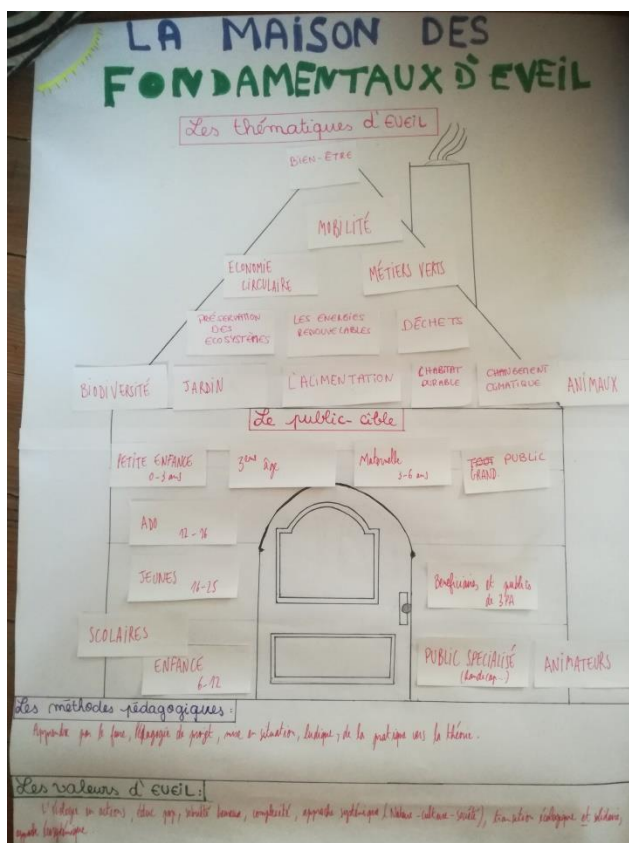 LA MAISON DES
FONDAMENTAUX D'EVEIL
Les thématiques d'EVEIL
BIEN-ÊTRE
MOBILITÉ
ECONOMIE
CIRCULAIRE
MÉTIERS VERTS
PRÉSERVATION
DES
ECOSYSTÈMES
LES ÉNERGIES
RENOUVELABLES
DÉCHETS
BIODIVERSITÉ
JARDIN
L'ALIMENTATION
L'HABITAT
DURABLE
CHANGEMENT
CLIMATIQUE
ANIMAUX
Le public-cible
PETITE ENFANCE
0-3 ans
3ème âge
Maternelle
3-6 ans
PUBLIC
GRAND
ADO
12-16
JEUNES
16-25
Bénéficiaires et publics
de 3PA
SCOLAIRES
ENFANCE
6-12
PUBLIC SPÉCIALISÉ
(handicap..)
ANIMATEURS
Les méthodes pédagogiques:
Apprendre par le faire, Pédagogie de projet, mise en situation, ludique, de la pratique vers la théorie.
Les valeurs d'EVEIL:
L'écologie en actions, éduc pop, complexité, approche systémique (Nature-culture-société), transition écologique et solidaire,